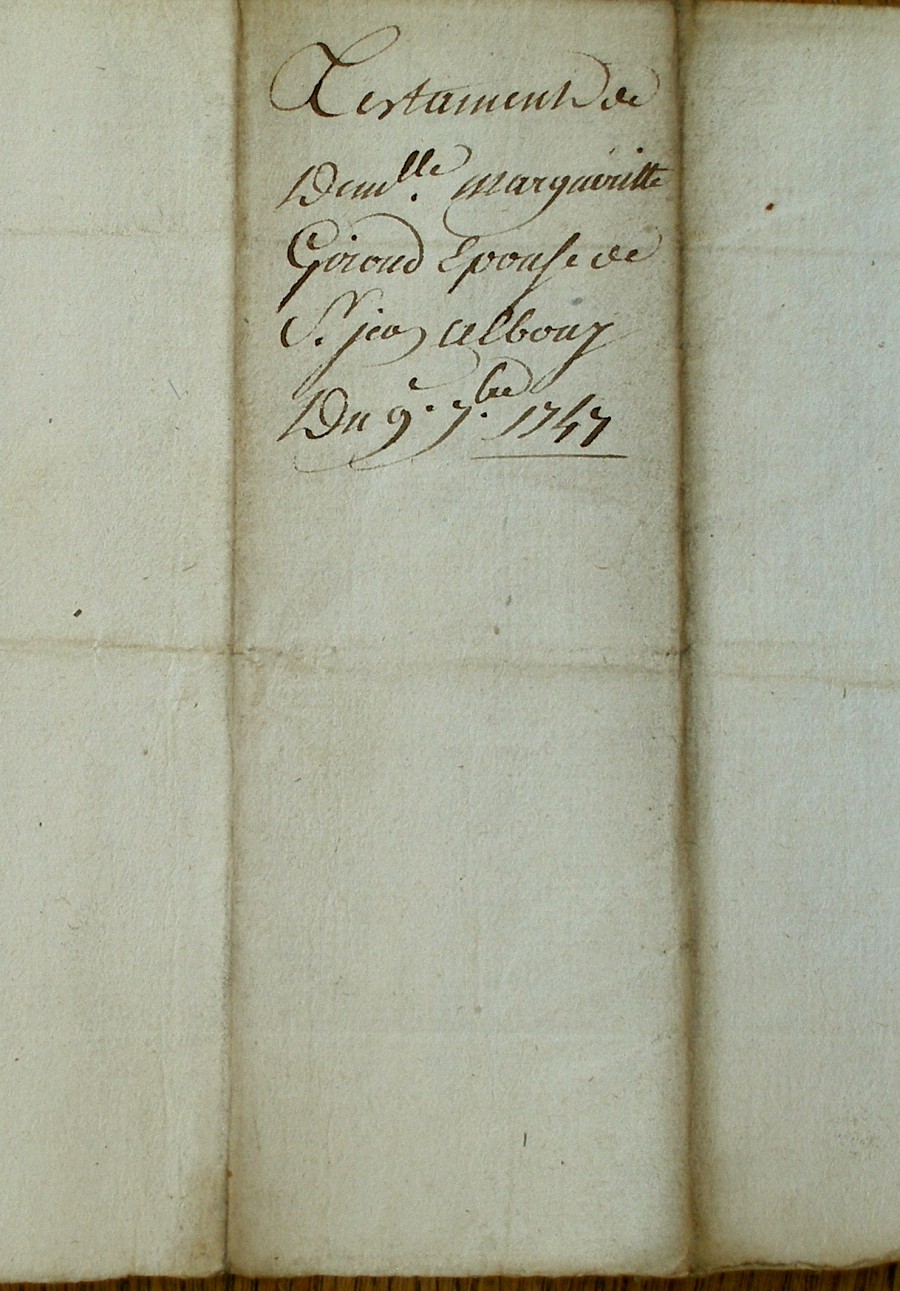 Testament de
Demlle. Margueritte
Giroud Epouse de
Sr. jean Albouy
Du 9e. 7bre. 1747